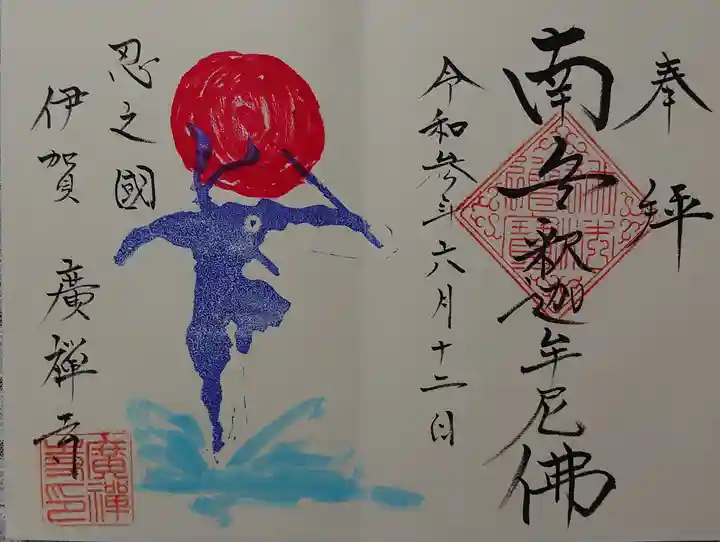 奉拝
南无釈迦牟尼佛
令和参年六月十二日
忍之國
伊賀 廣禅寺
廣禅寺印